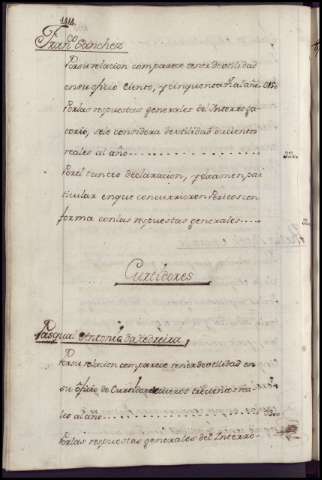 Franco Sanchez
Por su relacion comparece tener de utilidad
en su ofizio ciento, y cinquenta rs. al año 150.
Por las respuestas generales de el Interroga
torio, se le considera de utilidad ducientos
reales al año
Por el tanteo declarazion, y examen pa
ticular en que concurrieron Peritos con
forma con las respuestas generales
Curtidores
Pasqual Antonio da Pedreira
Por su relacion comparece tener de utilidad en
su ofizio de Curtidor
les al año
Por las respuestas generales del Interro-